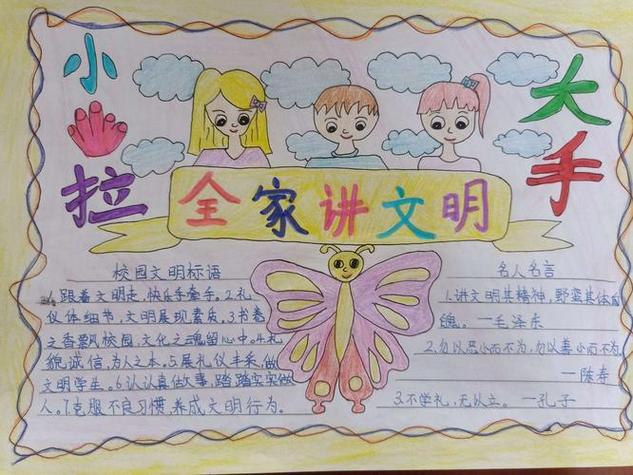 小
拉
大
手
全家讲文明
校园文明标语
跟着文明走,快乐手牵手。2.礼
仪体细节,文明展现素质,3书卷
之香飘校园,文化之魂留心中。4.礼
貌诚信,为人之本。5.展礼仪丰采,做
文明学生。6.认认真做大事,踏踏实实做
人。7.克服不良习惯,养成文明行为。
名人名言
1.讲文明其精神,野蛮其体
魄。一毛泽东
2.勿以恶小而不为,勿以善小而不为。
一陈寿
3.不学礼,无以立。一孔子